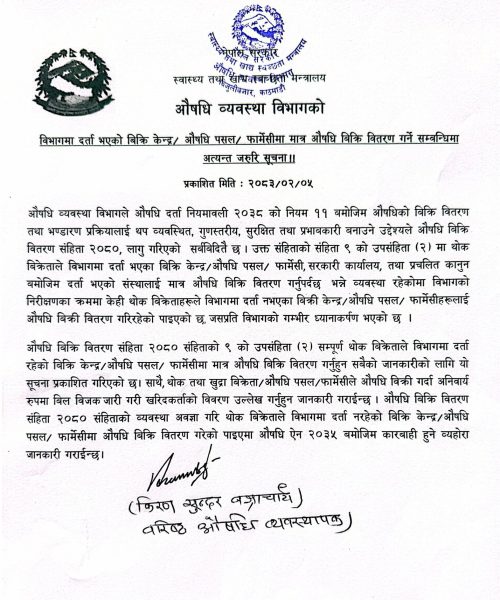 नेपाल सरकार
स्वास्थ्य तथा खाद्य स्वच्छता मन्त्रालय
औषधि व्यवस्था विभागको
विभागमा दर्ता भएको बिक्रि केन्द्र/ औषधि पसल/ फार्मेसीमा मात्र औषधि बिक्रि वितरण गर्ने सम्बन्धिमा
अत्यन्त जरुरि सूचना॥
प्रकाशित मिति : २०८३/०२/०५
औषधि व्यवस्था विभागले औषधि दर्ता नियमावली २०३८ को नियम ११ बमोजिम औषधिको बिक्रि वितरण
तथा भण्डारण प्रक्रियालाई थप व्यवस्थित, गुणस्तरीय, सुरक्षित तथा प्रभावकारी बनाउने उद्देश्यले औषधि बिक्रि
वितरण संहिता २०८०, लागु गरिएको सर्वविदितै छ । उक्त संहिताको संहिता ९ को उपसंहिता (२) मा थोक
बिक्रेताले विभागमा दर्ता भएका बिक्रि केन्द्र/औषधि पसल/ फार्मेसी, सरकारी कार्यालय, तथा प्रचलित कानुन
बमोजिम दर्ता भएको संस्थालाई मात्र औषधि बिक्रि वितरण गर्नुपर्दछ भन्ने व्यवस्था रहेकोमा विभागको
निरीक्षणका क्रममा केही थोक बिक्रेताहरूले विभागमा दर्ता नभएका बिक्री केन्द्र/औषधि पसल/ फार्मेसीहरूलाई
औषधि बिक्री वितरण गरिरहेको पाइएको छ, जसप्रति विभागको गम्भीर ध्यानाकर्षण भएको छ ।
औषधि बिक्रि वितरण संहिता २०८० संहिताको ९ को उपसंहिता (२) सम्पूर्ण थोक बिक्रेताले विभागमा दर्ता
रहेको बिक्रि केन्द्र/औषधि पसल/ फार्मेसीमा मात्र औषधि बिक्रि वितरण गर्नुहुन सबैको जानकारीको लागि यो
सूचना प्रकाशित गरिएको छ। साथै, थोक तथा खुद्रा बिक्रेता/औषधि पसल/फार्मेसीले औषधि बिक्री गर्दा अनिवार्य
रुपमा बिल बिजक जारी गरी खरिदकर्ताको विवरण उल्लेख गर्नुहुन जानकारी गराईन्छ। औषधि बिक्रि वितरण
संहिता २०८० संहिताको व्यवस्था अवज्ञा गरि थोक बिक्रेताले विभागमा दर्ता नरहेको बिक्रि केन्द्र/औषधि
पसल/ फार्मेसीमा औषधि बिक्रि वितरण गरेको पाइएमा औषधि ऐन २०३५ बमोजिम कारबाही हुने व्यहोरा
जानकारी गराईन्छ।
(किरण सुन्दर बज्राचार्य)
वरिष्ठ औषधि व्यवस्थापक)